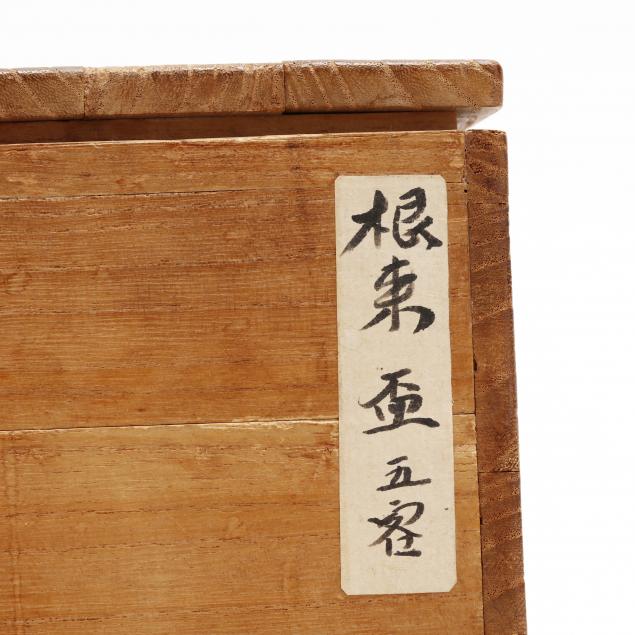 根来盃五客